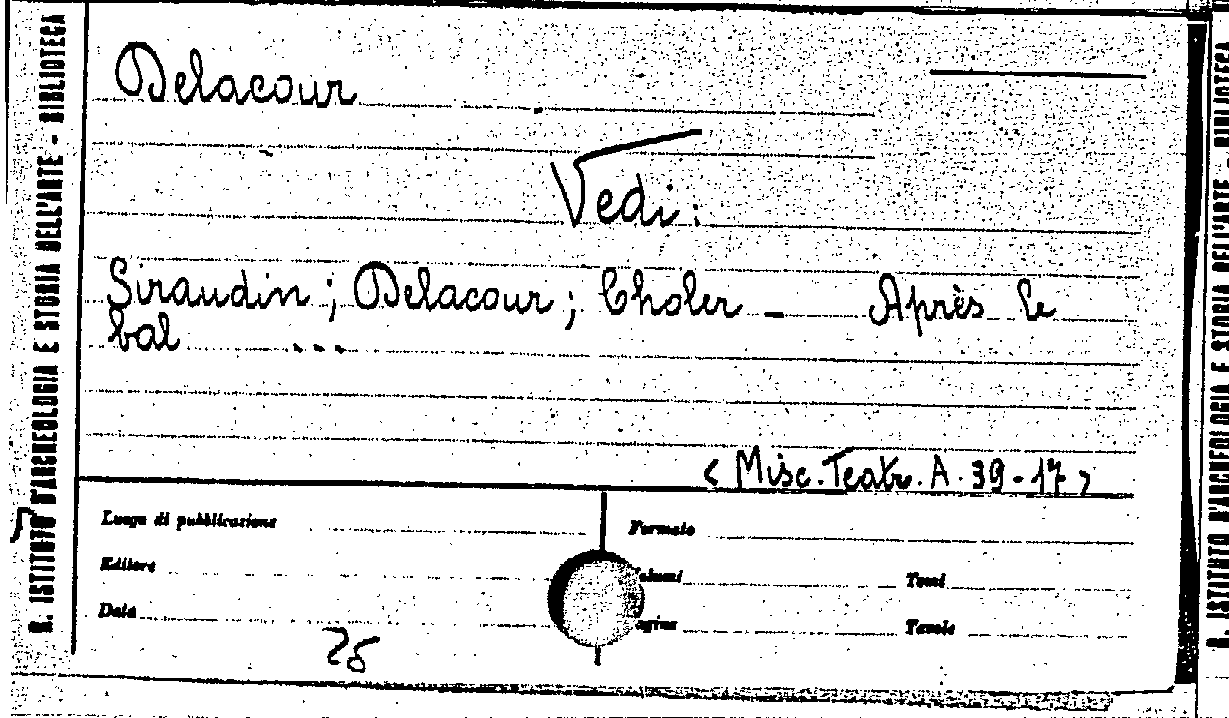 R. ISTITUTO D'ARCHEOLOGIA E STORIA DELL'ARTE - BIBLIOTECA
Delacour
Vedi:
Siraudin; Delacour; Choler - Après le
bal ...
< Misc. Teatr. A. 39-17 >
Luogo di pubblicazione
Formato
Editore
olumi
Tomi
Data
agine
Tavole
25
R. ISTITUTO D'ARCHEOLOGIA E STORIA DELL'ARTE - BIBLIOTECA